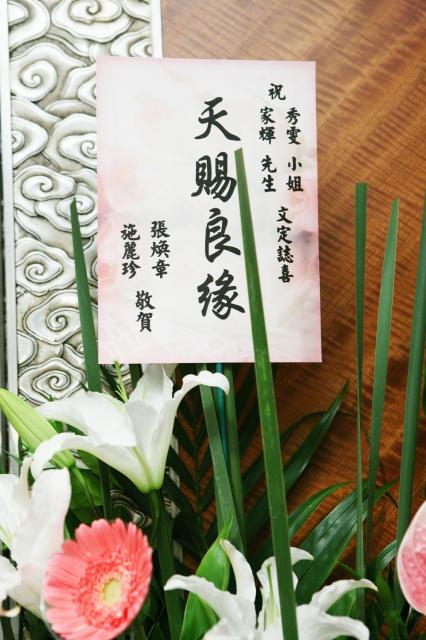 祝
秀雯 小姐
家輝 先生
文定誌喜
天賜良緣
張煥章
施麗珍
敬賀